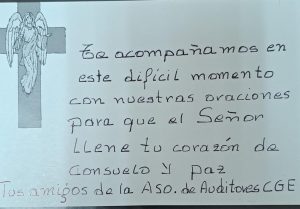 Te acompañamos en
este difícil momento
con nuestras oraciones
para que el Señor
llene tu corazón de
Consuelo y paz
Tus amigos de la Aso. de Auditores CGE